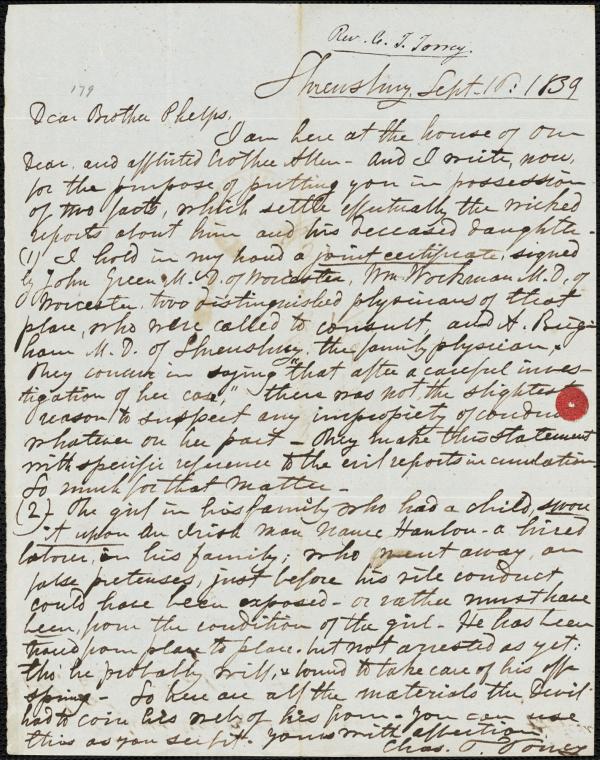 Rev. C. T. Torrey.
Shrewsbury, Sept. 16: 1839
179
Dear Brother Phelps,
I am here at the house of our
dear, and afflicted brother Allen - and I write, now,
for the purpose of putting you in possession
of two facts, which settle effectually the wicked
reports about him and his deceased daughter -
(1) I hold in my hand a joint certificate, signed
by John Green M. D. of Worcester, Wm Workman M. D. of
Worcester, two distinguished physicians of that
place, who were called to consult, and A. Brig
ham M. D. of Shrewsbury, the family physician,
They concur in saying "that after a careful inves-
tigation of her case," there was not the slightest
reason to suspect any impropriety of conduct
whatever on her part - They make this statement
with specific reference to the evil reports in circulation -
So much for that matter -
(2) The girl in his family who had a child, swore
it upon an Irish man name Hanlon - a hired
laborer, in his family; who went away, on
false pretenses, just before his vile conduct
could have been exposed - or rather must have
been, from the condition of the girl - He has been
traced from place to place, but not arrested as yet:
tho' he probably will, & bound to take care of his off
spring - So here are all the materials the Devil
had to coin his web of lies from - You can use
this as you see fit - Yours with affection
Chas. T. Torrey